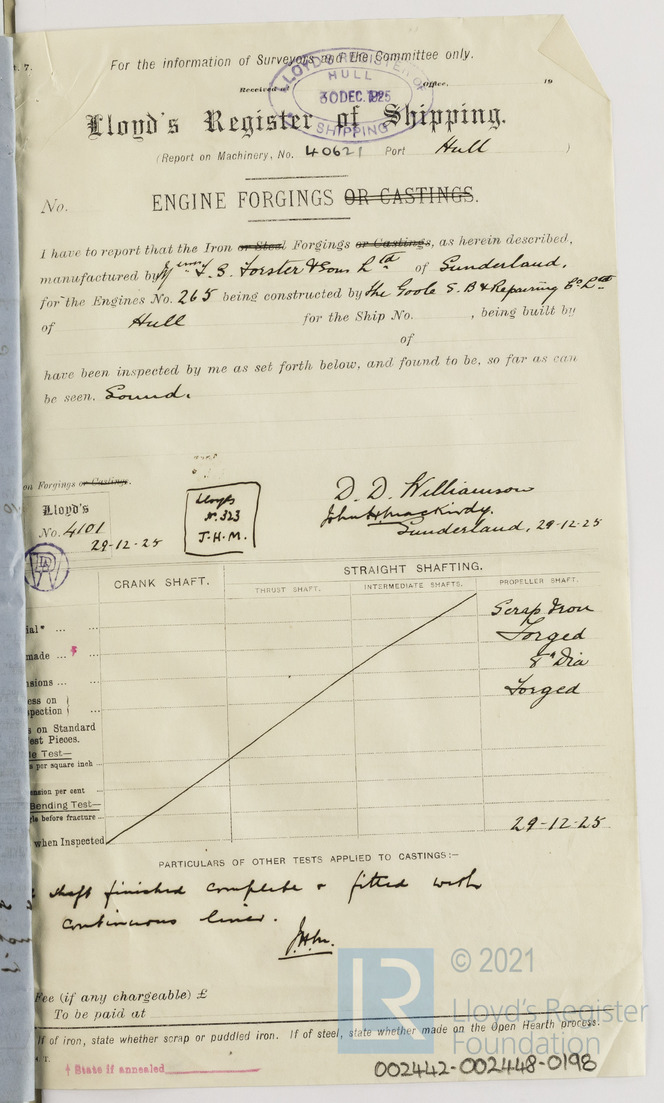 t. 7.
For the information of Surveyors and the Committee only.
Received at Office, 19
LLOYD'S REGISTER OF
HULL
30 DEC. 1925
SHIPPING
Lloyd's Register of Shipping.
(Report on Machinery, No. 40621 Port Hull )
No. ENGINE FORGINGS OR CASTINGS.
I have to report that the Iron or Steel Forgings or Castings, as herein described,
manufactured by T. S. Forster & Sons Ltd of Sunderland,
for the Engines No. 265 being constructed by The Goole S. B & Repairing Co. Ltd
of Hull for the Ship No. , being built by
of
have been inspected by me as set forth below, and found to be, so far as can
be seen, Sound.
on Forgings or Castings.
Lloyd's
No. 4101
29-12-25
Lloyds
No. 323
J.H.M.
D. D. Williamson
John H Mackirdy.
Sunderland, 29-12-25
CRANK SHAFT. STRAIGHT SHAFTING.
THRUST SHAFT. INTERMEDIATE SHAFTS. PROPELLER SHAFT.
ial* ... ... Scrap Iron
made ... † ... Forged
sions ... ... 8" Dia
ess on
spection ... Forged
s on Standard
est Pieces.
le Test—
s per square inch ...
ension per cent ...
Bending Test—
gle before fracture ...
when Inspected 29-12-25
PARTICULARS OF OTHER TESTS APPLIED TO CASTINGS:—
shaft finished complete & fitted with
continuous liner.
J.H.M.
Fee (if any chargeable) £
To be paid at
If of iron, state whether scrap or puddled iron. If of steel, state whether made on the Open Hearth process.
† State if annealed
LR
© 2021
Lloyd's Register
Foundation
002442-002448-0198